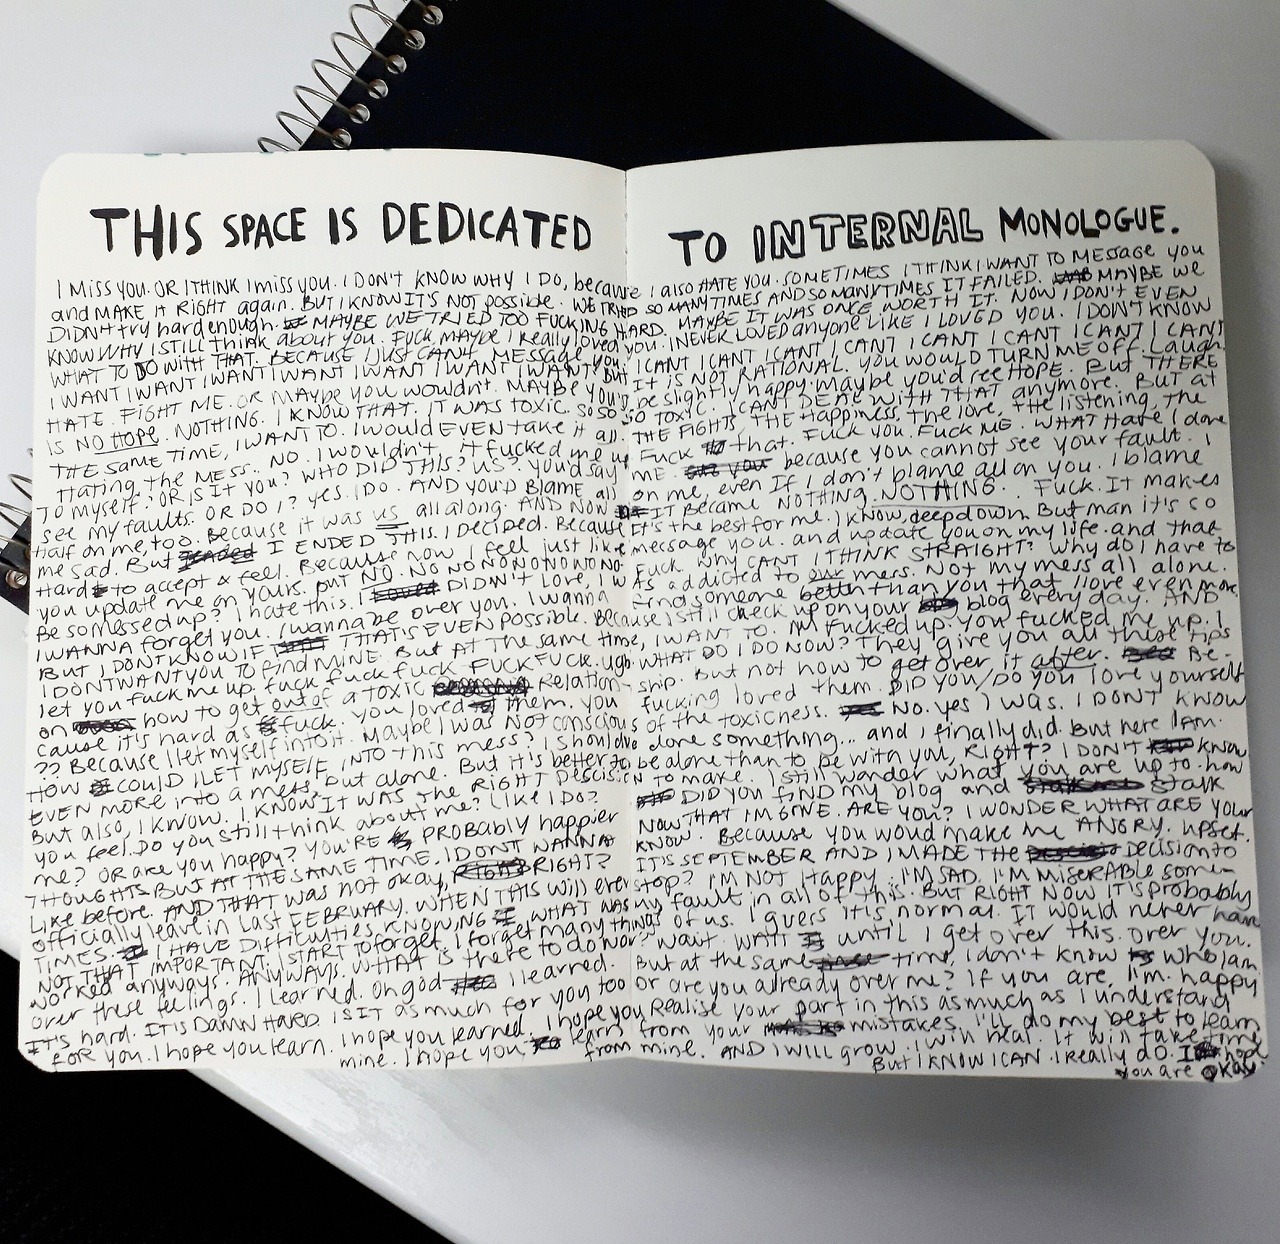 THIS SPACE IS DEDICATED TO INTERNAL MONOLOGUE.
I MISS YOU. OR I THINK I miss YOU. I DON'T KNOW WHY I DO, because I also HATE YOU. SOMETIMES I THINK I WANT TO MESSAGE YOU
and MAKE IT RIGHT again. BUT I KNOW IT'S NOT possible. WE TRIED SO MANY TIMES AND SO MANY TIMES IT FAILED. MAYBE WE
DIDN'T try hard enough. MAYBE WE TRIED TOO FUCKING HARD. MAYBE IT WAS ONCE WORTH IT. NOW I DON'T EVEN
KNOW WHY I STILL think about YOU. FUCK, MAYBE I REALLY loved YOU. I NEVER LOVED anyone LIKE I LOVED YOU. I DON'T KNOW
WHAT TO DO WITH THAT. BECAUSE I JUST CAN'T MESSAGE YOU. I CANT I CANT I CANT I CANT I CANT I CANT I CANT
I WANT I WANT I WANT I WANT I WANT I WANT I WANT BUT It is NOT RATIONAL. YOU WOULD TURN ME OFF. Laugh.
HATE. FIGHT ME. OR MAYBE YOU WOULDN'T. MAYBE YOU'D be slightly happy. Maybe you'd see HOPE. BUT THERE
IS NO HOPE. NOTHING. I KNOW THAT. IT WAS TOXIC. SO SO SO TOXIC. I CAN'T DEAL WITH THAT anymore. BUT at
THE SAME TIME, I WANT TO. I WOULD EVEN take it all. THE FIGHTS, THE Happiness, The love, the listening, the
Hating the MESS. NO. I wouldn't. It fucked me up. Fuck that. FUCK YOU. FUCK ME. WHAT HAVE I done
TO MYSELF? OR IS IT YOU? WHO DID THIS? US? YOU'D say ME. because YOU CANNOT see your fault. I
see my faults. OR DO I? yes. I DO. AND YOU'D BLAME all on me, even If I don't blame all on you. I blame
half on me, too. Because it was us all along. AND NOW IT BECAME NOTHING. NOTHING. FUCK. It makes
me sad. But I ENDED THIS. I DECIDED. Because It's the best for me. I know, deep down. But man it's so
Hard to accept & feel. Because now I feel just like message you. and update you on my life. and that
you update me on yours. but NO. NO NO NO NO NO NO NO. Fuck. WHY CAN'T I THINK STRAIGHT? Why do I have to
Be so messed up? I hate this. I DIDN'T LOVE, I WAS addicted to our mess. Not my mess all alone.
I WANNA forget you. I wanna be over you. I wanna find someone better than you that I love even more.
BUT I DON'T KNOW IF THAT'S EVEN POSSIBLE. Because I still check up on your blog every day. AND
I DON'T WANT YOU TO FIND MINE. But AT THE same time, I WANT TO. I'M FUCKED up. YOU fucked me up. I
let you fuck me up. fuck fuck fuck FUCK FUCK. ugh. WHAT DO I DO NOW? They give you all these tips
on how to get out of a toxic Relation-ship. But not how to get over it after. Be-
cause it's hard as fuck. you loved them. you fucking loved them. DID YOU/DO YOU love yourself
?? Because I let myself into it. Maybe I was NOT conscious of the toxicness. No. yes I was. I DON'T KNOW
HOW COULD I LET MYSELF INTO THIS MESS? I should've done something... and I finally did. But here I AM.
EVEN MORE into a mess but alone. But it's better to be alone than to be with you, RIGHT? I DON'T know
But also, I know. I KNOW IT WAS THE RIGHT DECISION to make. I still wonder what you are up to. how
you feel. Do you still think about me? Like I DO? DID YOU FIND my blog and stalk
me? OR are you happy? YOU'RE PROBABLY happier NOW THAT I'M GONE. ARE YOU? I WONDER WHAT ARE YOUR
THOUGHTS. BUT AT THE SAME TIME. I DONT WANNA KNOW. Because you woud make me ANGRY. upset.
Like before. AND THAT was not okay, RIGHT? IT'S SEPTEMBER AND I MADE THE DECISION to
officially leave in Last FEBRUARY. WHEN THIS will ever stop? I'M NOT Happy. I'M SAD. I'M MISERABLE some-
TIMES. I HAVE DIFFICULTIES KNOWING WHAT WAS my fault in all of this. BUT RIGHT NOW IT'S probably
NOT THAT IMPORTANT. I START TO forget. I forget many things of us. I guess it is normal. IT would never have
worked anyways. ANYWAYS. WHAT is there to do now? Wait. WAIT until I get over this. over you.
over these feelings. I learned. Oh god I learned. But at the same time, I don't know who I am.
It's hard. IT IS DAMN HARD. IS IT as much for you too or are you already over me? If you are, I'm happy
FOR YOU. I hope you learn. I hope you learned. I hope you Realise your part in this as much as I understand
mine. I hope you learn from your mistakes. I'll do my best to learn
from mine. AND I WILL grow. I will heal. It will take time
But I KNOW I CAN. I Really do. I hope
you are okay.